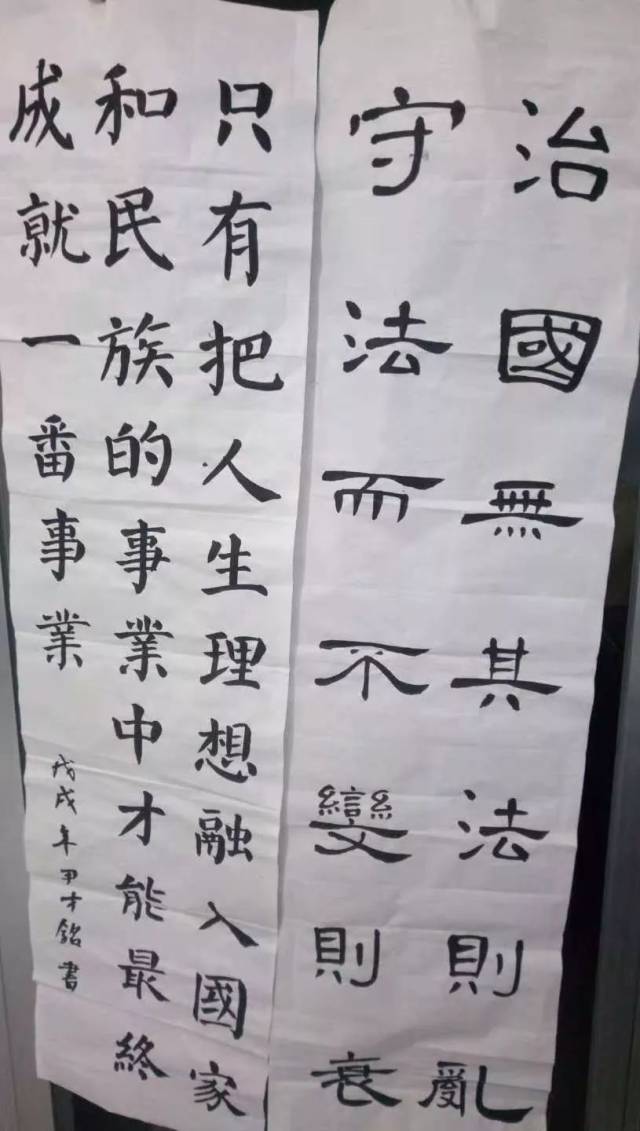 治國無其法則亂
守法而不變則衰
只有把人生理想融入國家
和民族的事業中才能最終
成就一番事業
戊戌年尹才銘書